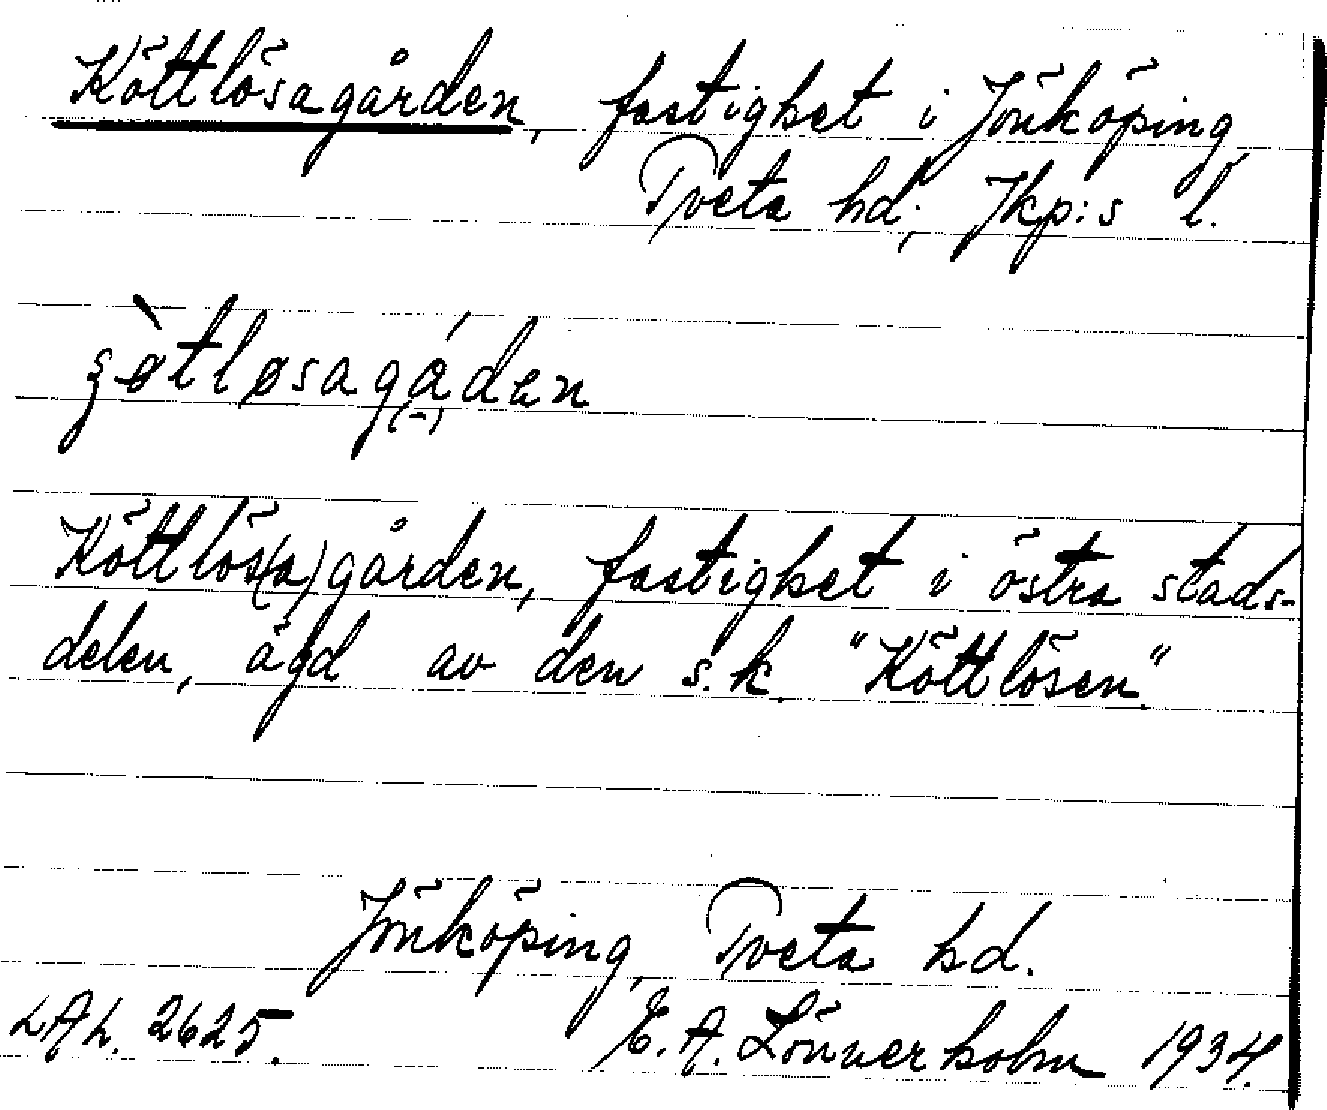 Köttlösagården, fastighet i Jönköping,
Tveta hd; Jkp:s l.
Köttlös(a)gården, fastighet i östra stads-
delen, ägd av den s.k. "Köttlösen".
Jönköping, Tveta hd.
LAL. 2625. E. A. Lönnerholm 1934.